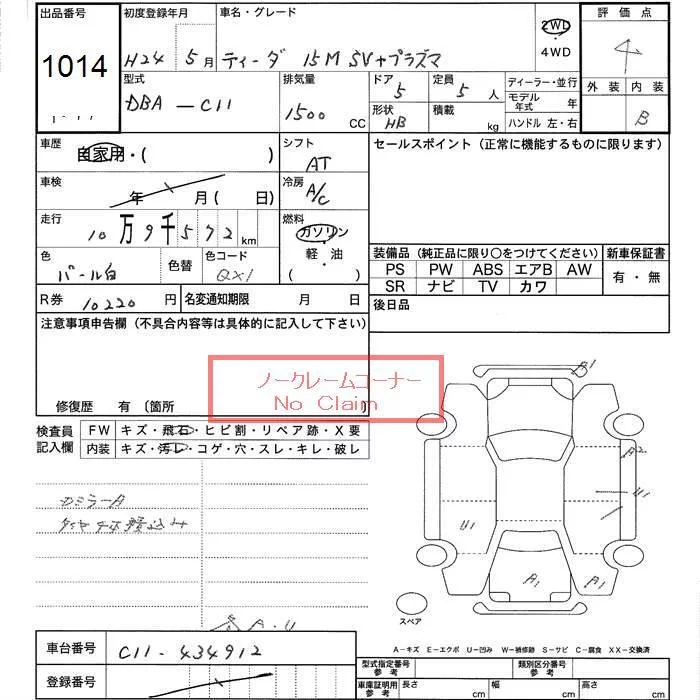 出品番号 初度登録年月 車名・グレード 2WD 評価点
1014 H24 5月 ティーダ 15M SV+プラズマ 4WD 4
型式 排気量 ドア 定員 ディーラー・並行 外装 内装
DBA-C11 1500 CC 5 5 人 モデル年式 年 B
形状 HB 積載 kg ハンドル 左・右
車歴 自家用・( ) シフト AT セールスポイント(正常に機能するものに限ります)
車検 年 月( 日) 冷房 A/C
走行 10万9千572km 燃料 ガソリン
軽・油
( )
色 パール白 色替 色コード QX1
装備品(純正品に限り○をつけてください) 新車保証書
PS PW ABS エアB AW 有・無
SR ナビ TV カワ
R券 10220円 名変通知期限 月 日 後日品
注意事項申告欄(不具合内容等は具体的に記入して下さい)
ノークレームコーナー
No Claim
修復歴 有〔箇所 〕
検査員記入欄 FW キズ・飛石・ヒビ割・リペア跡・X要
内装 キズ・汚レ・コゲ・穴・スレ・キレ・破レ
A1
A2
U1
U1
A1
A1
スペア
A・U
A-キズ E-エクボ U-凹み W-補修跡 S-サビ C-腐食 XX-交換済
車台番号 C11-434912
登録番号
型式指定番号 参考 類別区分番号 参考
車庫証明用 参考 長さ cm 幅 cm 高さ cm